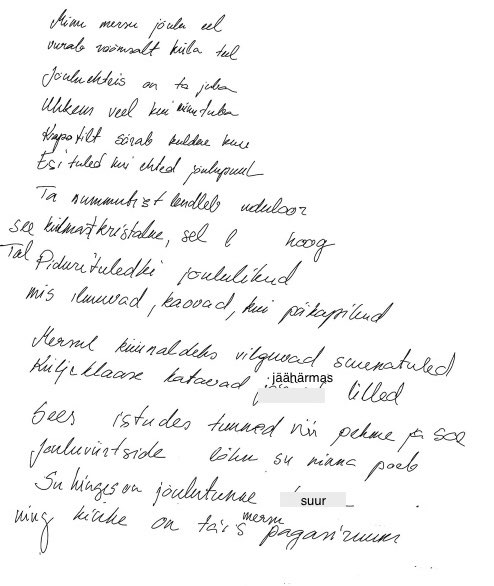 Minu mersu jõulu eel
vurab rõõmsalt küla teel
Jõuluehteis on ta juba
Uhkem veel kui minu tuba
Kapotilt särab kuldne kuu
Esituled kui ehted jõulupuul
Ta summutist lendleb uduloor
see külmast kristalne, sel hoog
Tal Pidurituledki jõululikud
mis ilmuvad, kaovad, kui päkapikud
Mersul küünaldeks vilguvad suunatuled
Küljeklaase katavad jäähärmas lilled
Sees istudes tunned nii pehme ja soe
Jõuluvürtside lõhn su ninna poeb
Su hinges on jõulutunne suur
ning kinke on täis mersu pagasiruum